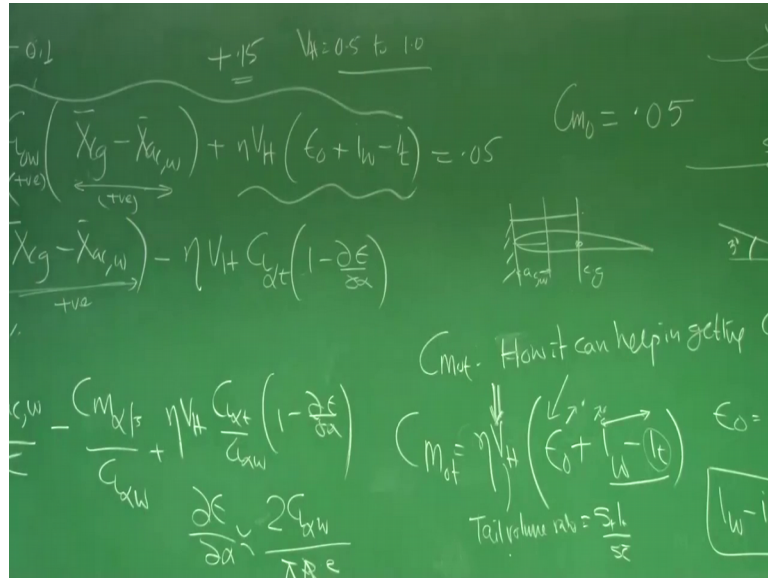 -0.1 +.15 V_H = 0.5 to 1.0
C_{L_{0w}} ( X̄cg - X̄ac,w ) + ηV_H ( ε₀ + i_w - i_t ) = .05
(+ve) (+ve)
C_{m_0} = .05
X̄cg - X̄ac,w ) - η V_H C_{L_{αt}} ( 1 - ∂ε/∂α )
+ve
ac,w cg
3°
C_{m_{0t}} - How it can help in getting C
ac,w/c̄ - C_{m_{α/f}}/C_{L_{αw}} + ηV_H C_{L_{αt}}/C_{L_{αw}} ( 1 - ∂ε/∂α )
C_{m_{0t}} = ηV_H ( ε₀ + i_w - i_t )
ε₀ =
∂ε/∂α ≈ 2C_{L_{αw}}/πARe
Tail volume ratio = S_t l_t/Sc̄
i_w - i